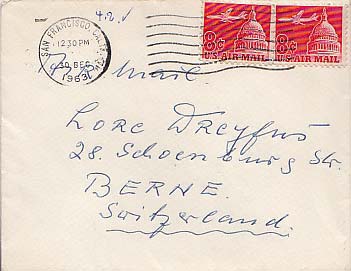 4.2.✓
SAN FRANCISCO, CALIF.
12 30 PM
30 DEC
1963
8¢ 8¢
U.S. AIR MAIL U.S. AIR MAIL
Air Mail
Lore Dreyfus
28. Schoenburg Str.
BERNE.
Switzerland.